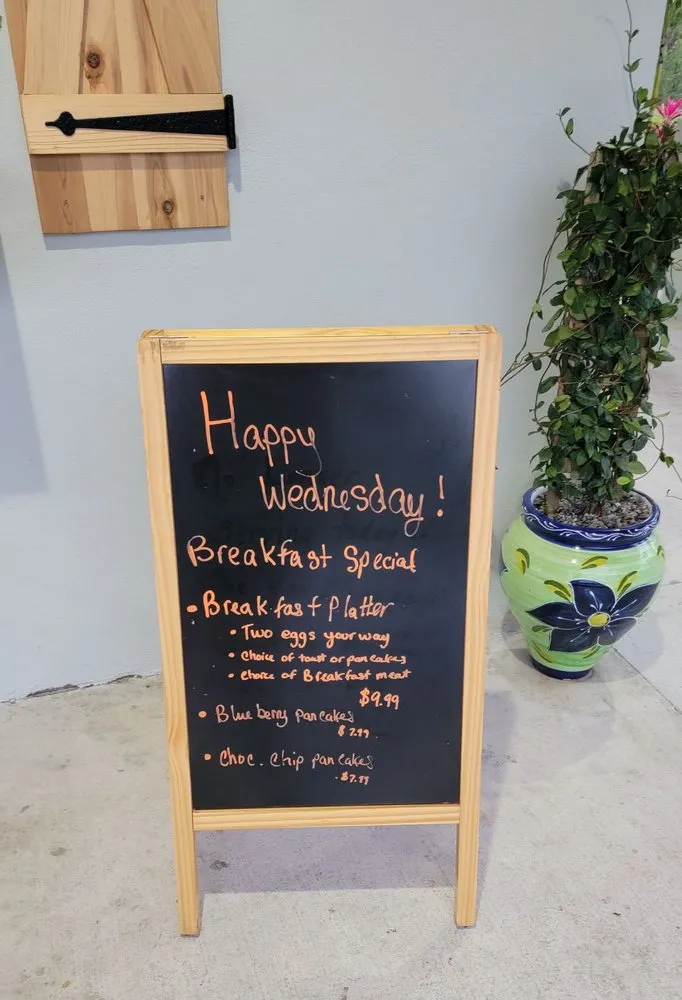 Happy
Wednesday!
Breakfast Special
• Breakfast Platter
• Two eggs your way
• Choice of toast or pancakes
• Choice of Breakfast meat
$9.99
• Blueberry pancakes
$7.99
• Choc. Chip pancakes
$7.99